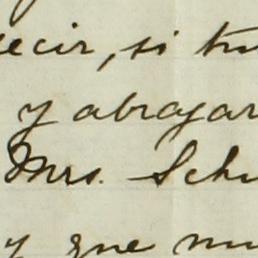 ecir, si tu
y abrazar
Mrs. Schu
y que mu